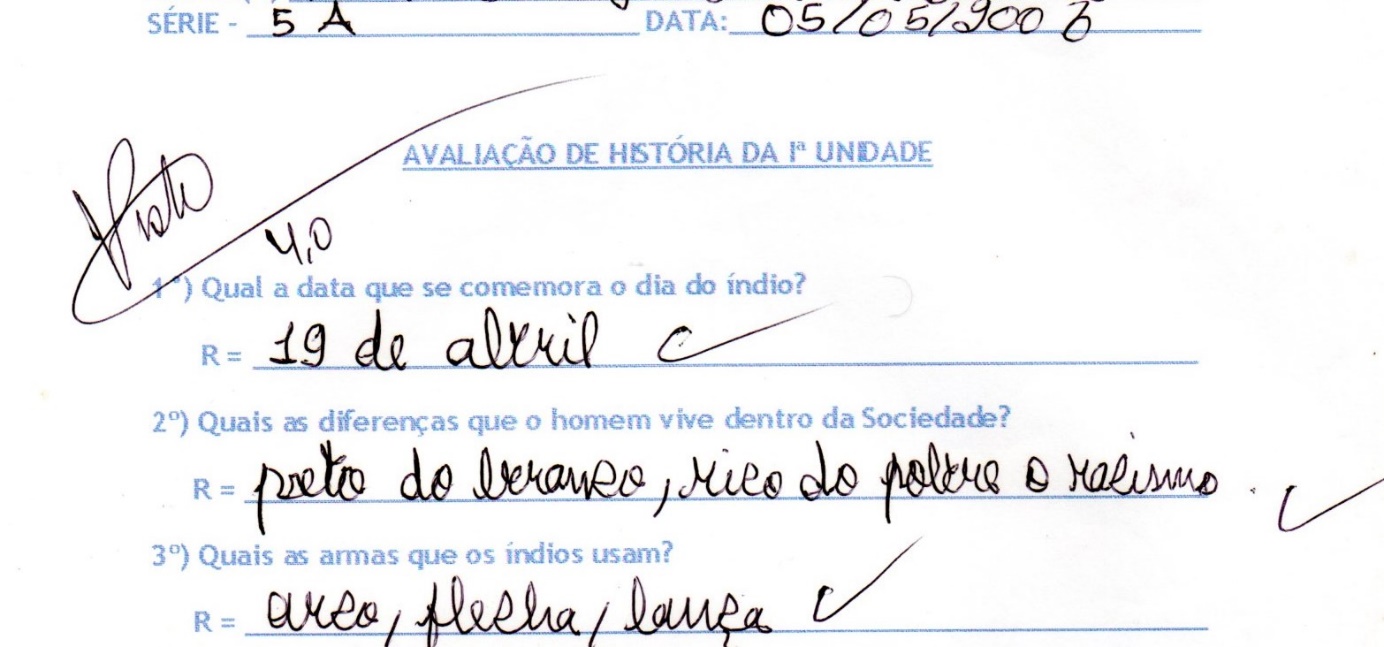 SÉRIE - 5 A DATA: 05/05/2006
AVALIAÇÃO DE HISTÓRIA DA Iª UNIDADE
Visto
4,0
1º) Qual a data que se comemora o dia do índio?
R = 19 de abril
2º) Quais as diferenças que o homem vive dentro da Sociedade?
R = preto do branco, rico do pobre o racismo.
3º) Quais as armas que os índios usam?
R = arco, flecha, lança